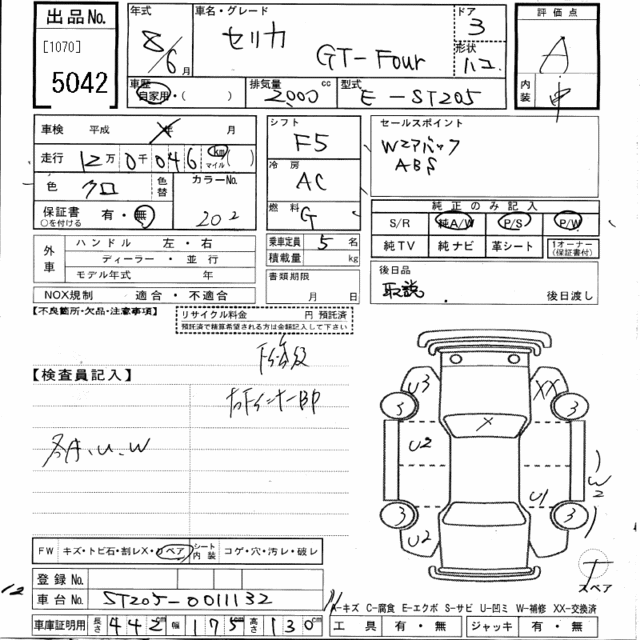 出品No.
[1070]
5042
年式
8/6月
車名・グレード
セリカ GT-Four
ドア
3
形状
ハコ
評価点
A
内装
車歴
自家用・( )
排気量 cc
2,000
型式
E-ST205
車検 平成 年 月
走行 12万0千046 km マイル( )
色 クロ
色替
カラーNo.
202
保証書 有・無
○を付ける
シフト
F5
冷房
AC
燃料
G
セールスポイント
Wエアバック
ABS
純正のみ記入
S/R 純A/W P/S P/W
純TV 純ナビ 革シート 1オーナー(保証書付)
外車
ハンドル 左・右
ディーラー・並行
モデル年式 年
乗車定員 5名
積載量 kg
書類期限
月 日
後日品
取説
後日渡し
NOX規制 適合・不適合
【不良箇所・欠品・注意事項】
リサイクル料金 円 預託済
預託済で精算希望される方は金額記入して下さい
【検査員記入】
各A.U.W
U3 XX
S 3
U2 X
U1 W2
3 3
U2
スペア
FW キズ・トビ石・割レX・リペア
シート内装 コゲ・穴・汚レ・破レ
登録No.
12
車台No. ST205-0011132
車庫証明用 長さ 442cm 幅 175cm 高さ 130cm
A-キズ C-腐食 E-エクボ S-サビ U-凹ミ W-補修 XX-交換済
工具 有・無 ジャッキ 有・無